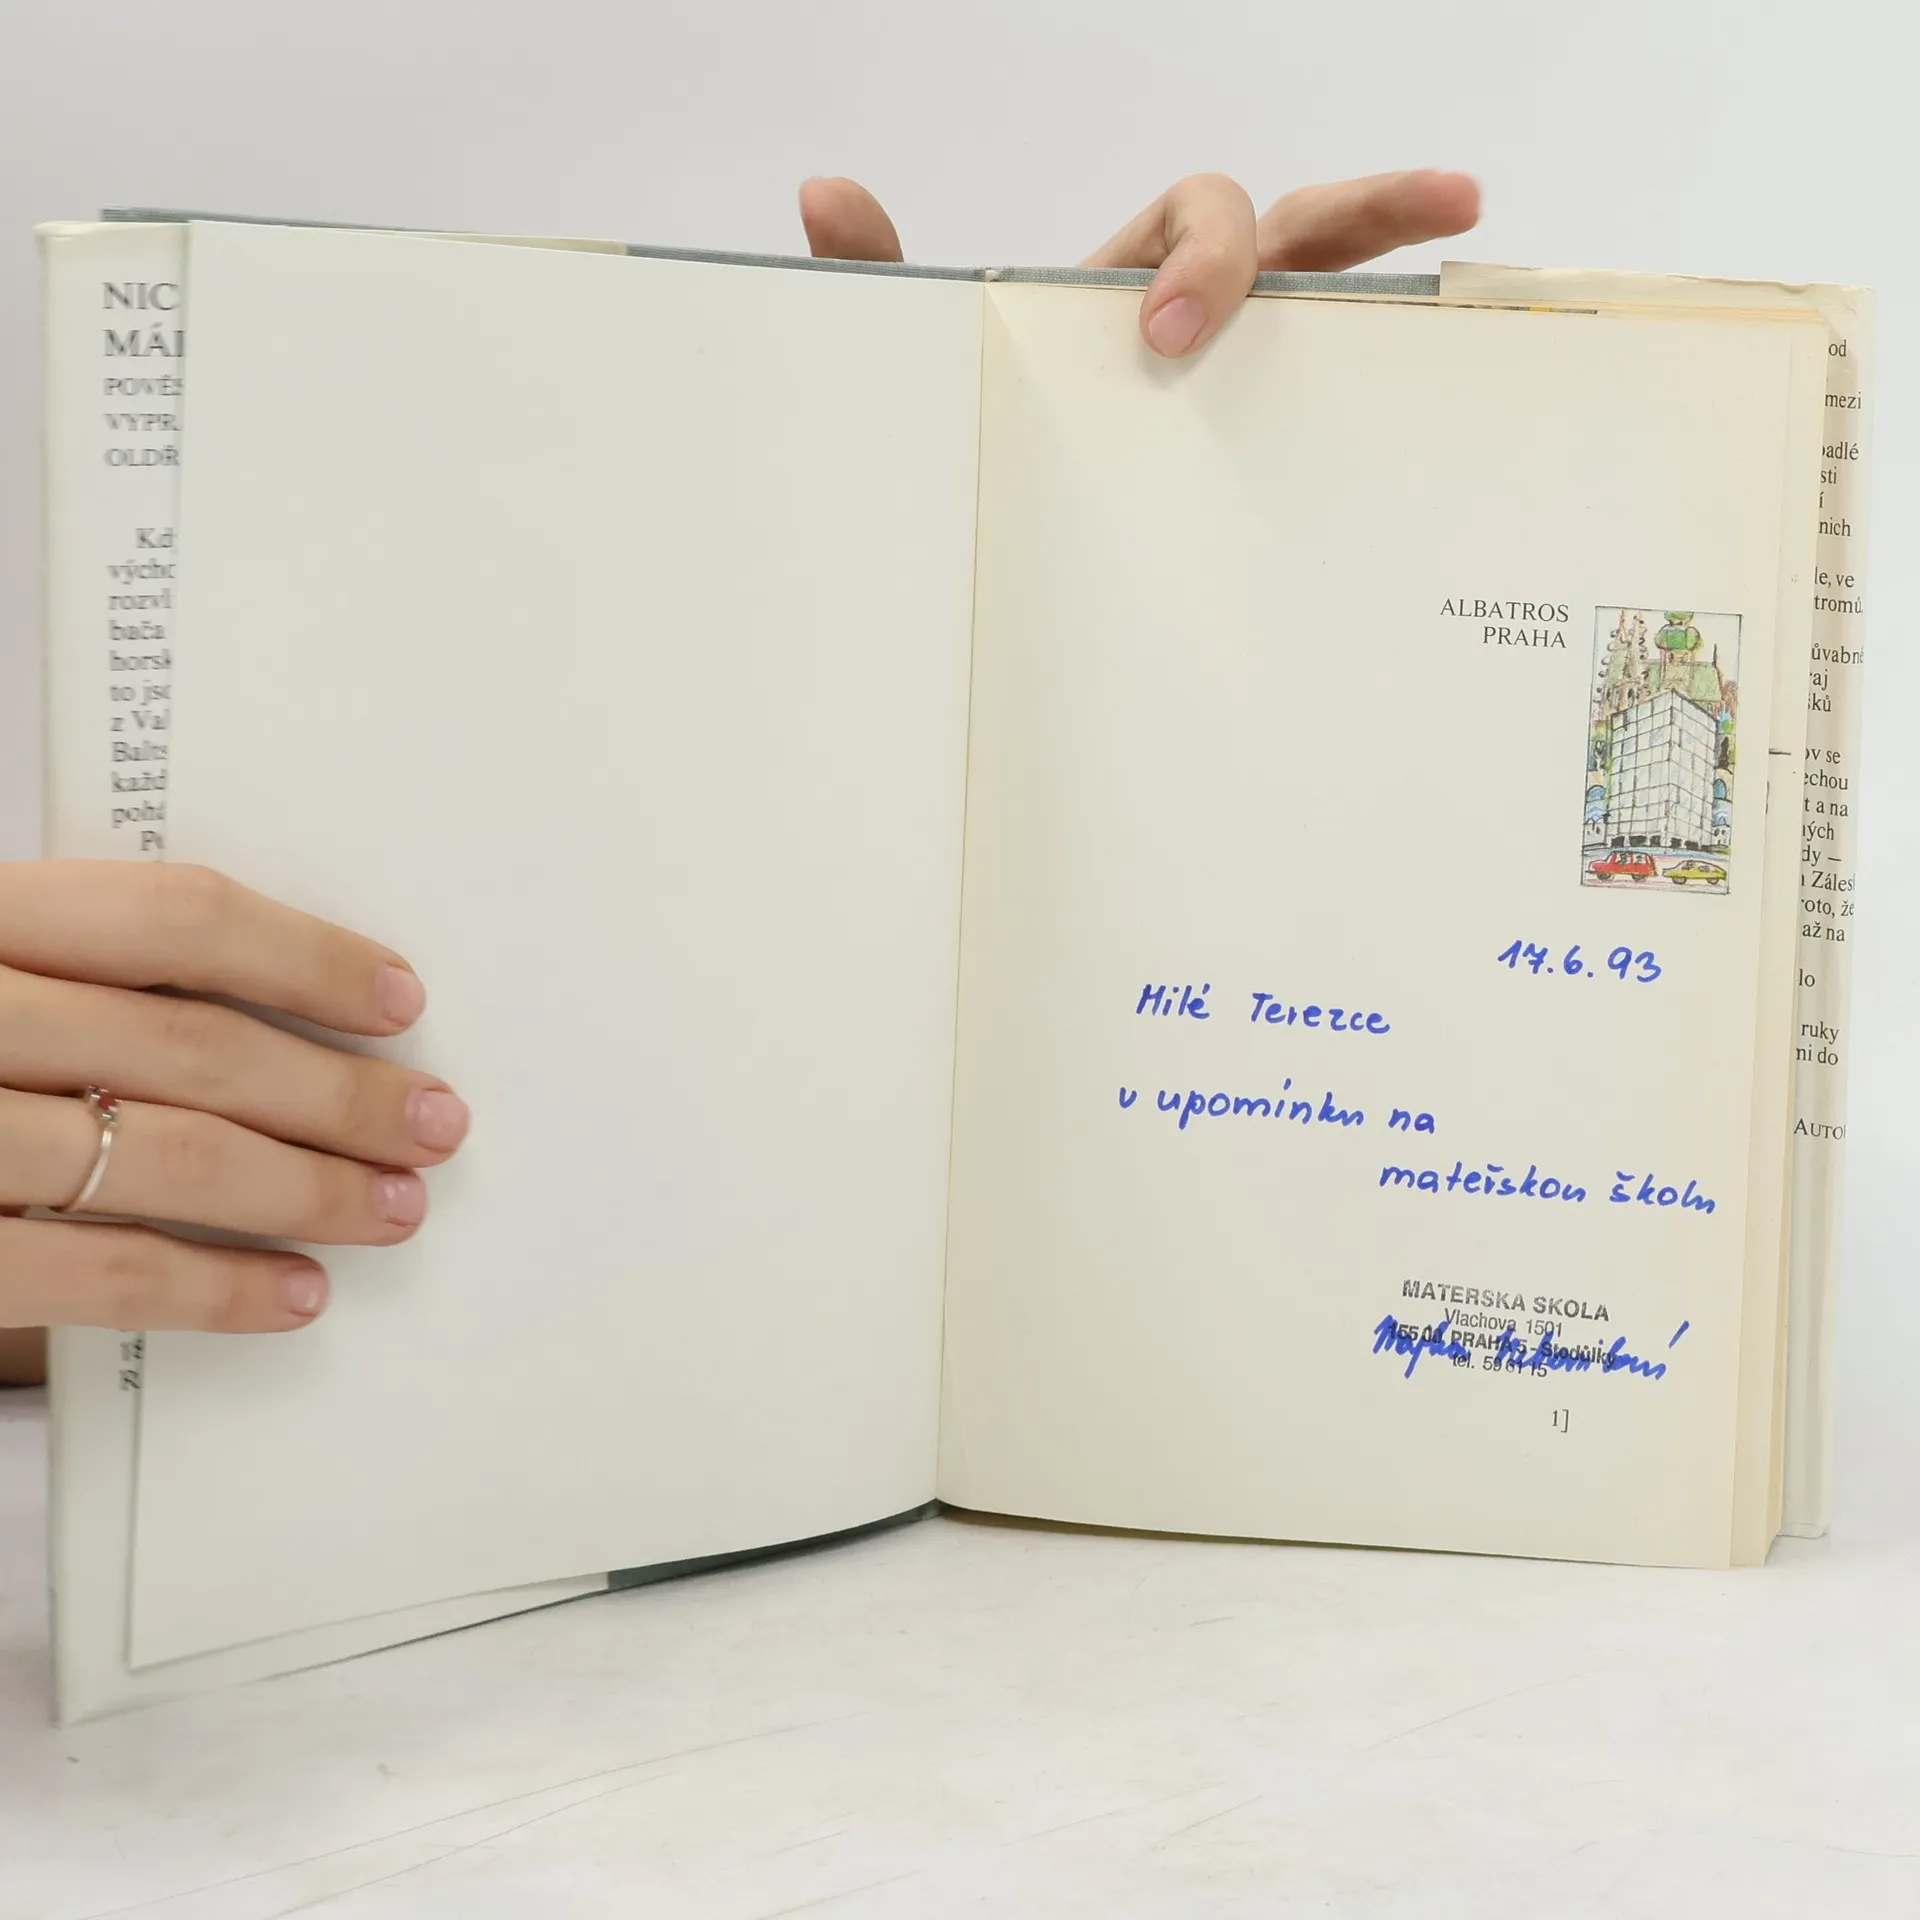 NIC
POVĚS
VYPR
OLDŘ
Kd
rozvl
bača
horsk
to jso
z Val
každ
pohá
ALBATROS
PRAHA
17.6.93
Milé Terezce
v upomínku na
mateřskou školu
MATERSKA SKOLA
Vlachova 1501
155 00 PRAHA 5 - Stodůlky
tel. 59 61 15
1]
od
mezi
padlé
sti
í
nich
le, ve
tromů.
ůvabné
raj
šků
ov se
echou
t a na
ných
dy –
Zálesí
roto, že
až na
lo
ruky
mi do
AUTO